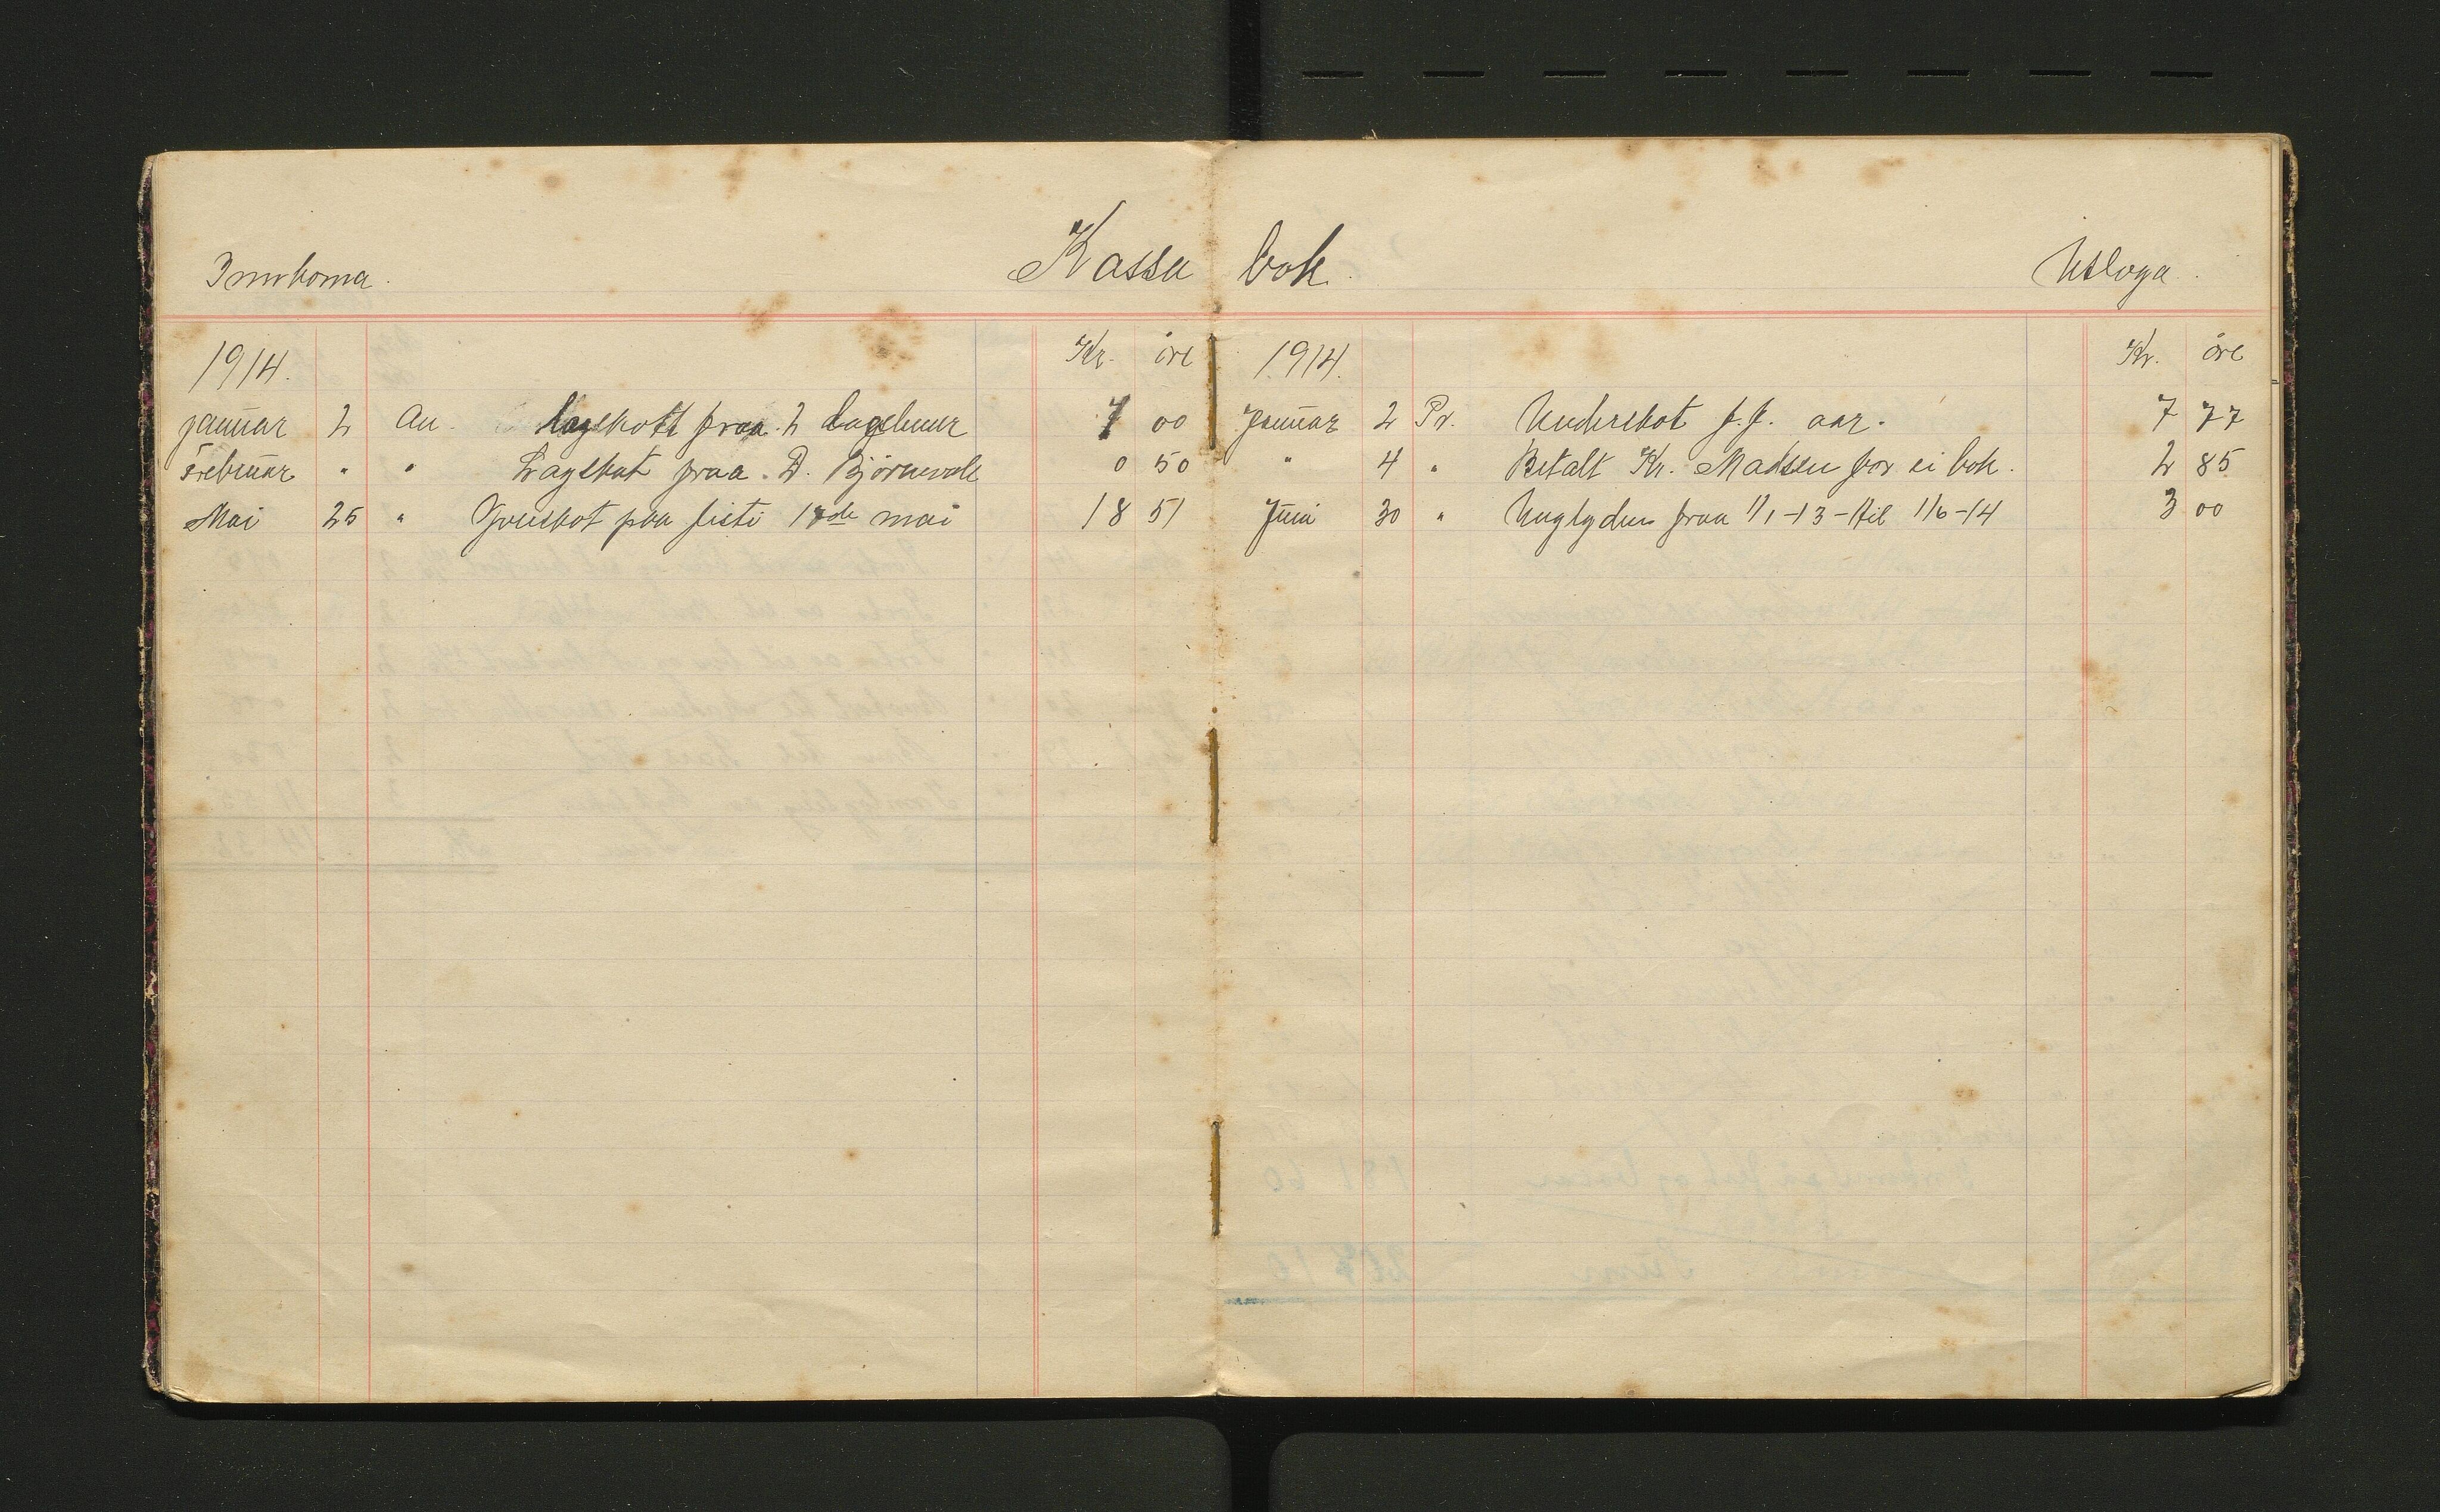 Kassabok.
Innkoma.
1914. Kr. öre
januar 2 An. lagskott fraa 2 lagslemer 1 00
Februar " " Lagskot fraa D. Bjørnevoll 0 50
Mai 25 " Yverskot paa festi 17de mai 18 51
Utloga.
1914. Kr. öre
Januar 2 Pr. Underskot f.f. aar. 7 77
" 4 " Betalt Kr. Madsen for ei bok. 2 85
Juni 30 " Unglyden fraa 1/1-13-til 1/6-14 3 00